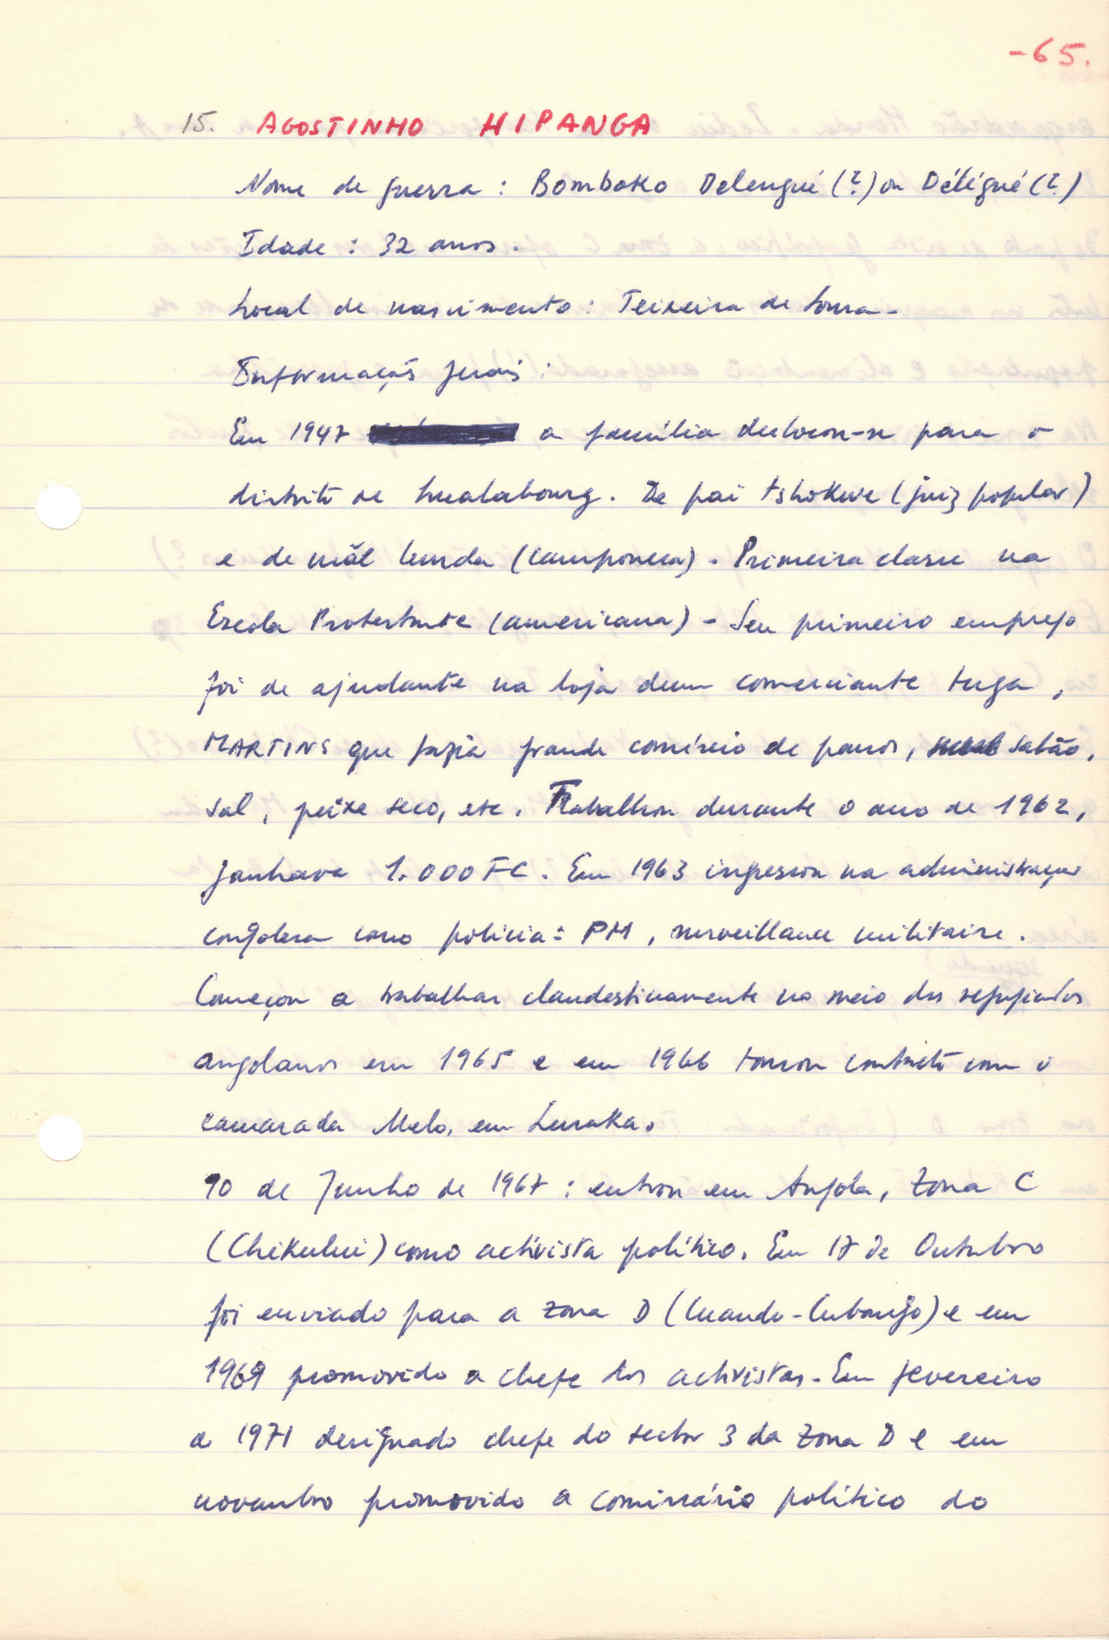 -65.
15. AGOSTINHO HIPANGA
Nome de guerra : Bomboko Delengué (?) ou Déligué (?)
Idade : 32 anos.
Local de nascimento : Teixeira de Sousa.
Informações gerais :
Em 1947 a família deslocou-se para o
distrito de Lualabourg. De pai tshokwe (juiz popular)
e de mãe lunda (camponesa). Primeira classe na
Escola Protestante (americana) - Seu primeiro emprego
foi de ajudante na loja dum comerciante tuga,
MARTINS que fazia grande comércio de panos, sabão,
sal, peixe seco, etc. Trabalhou durante o ano de 1962,
ganhava 1.000 FC. Em 1963 ingressou na administração
congolesa como polícia : PM, surveillance militaire.
Começou a trabalhar clandestinamente no meio dos refugiados
angolanos em 1965 e em 1966 tomou contacto com o
camarada Melo, em Lusaka.
10 de Junho de 1967 : entrou em Angola, Zona C
(Chikului) como activista político. Em 17 de Outubro
foi enviado para a Zona D (Cuando-Cubango) e em
1969 promovido a chefe dos activistas. Em fevereiro
de 1971 designado chefe do sector 3 da Zona D e em
novembro promovido a comissário político do